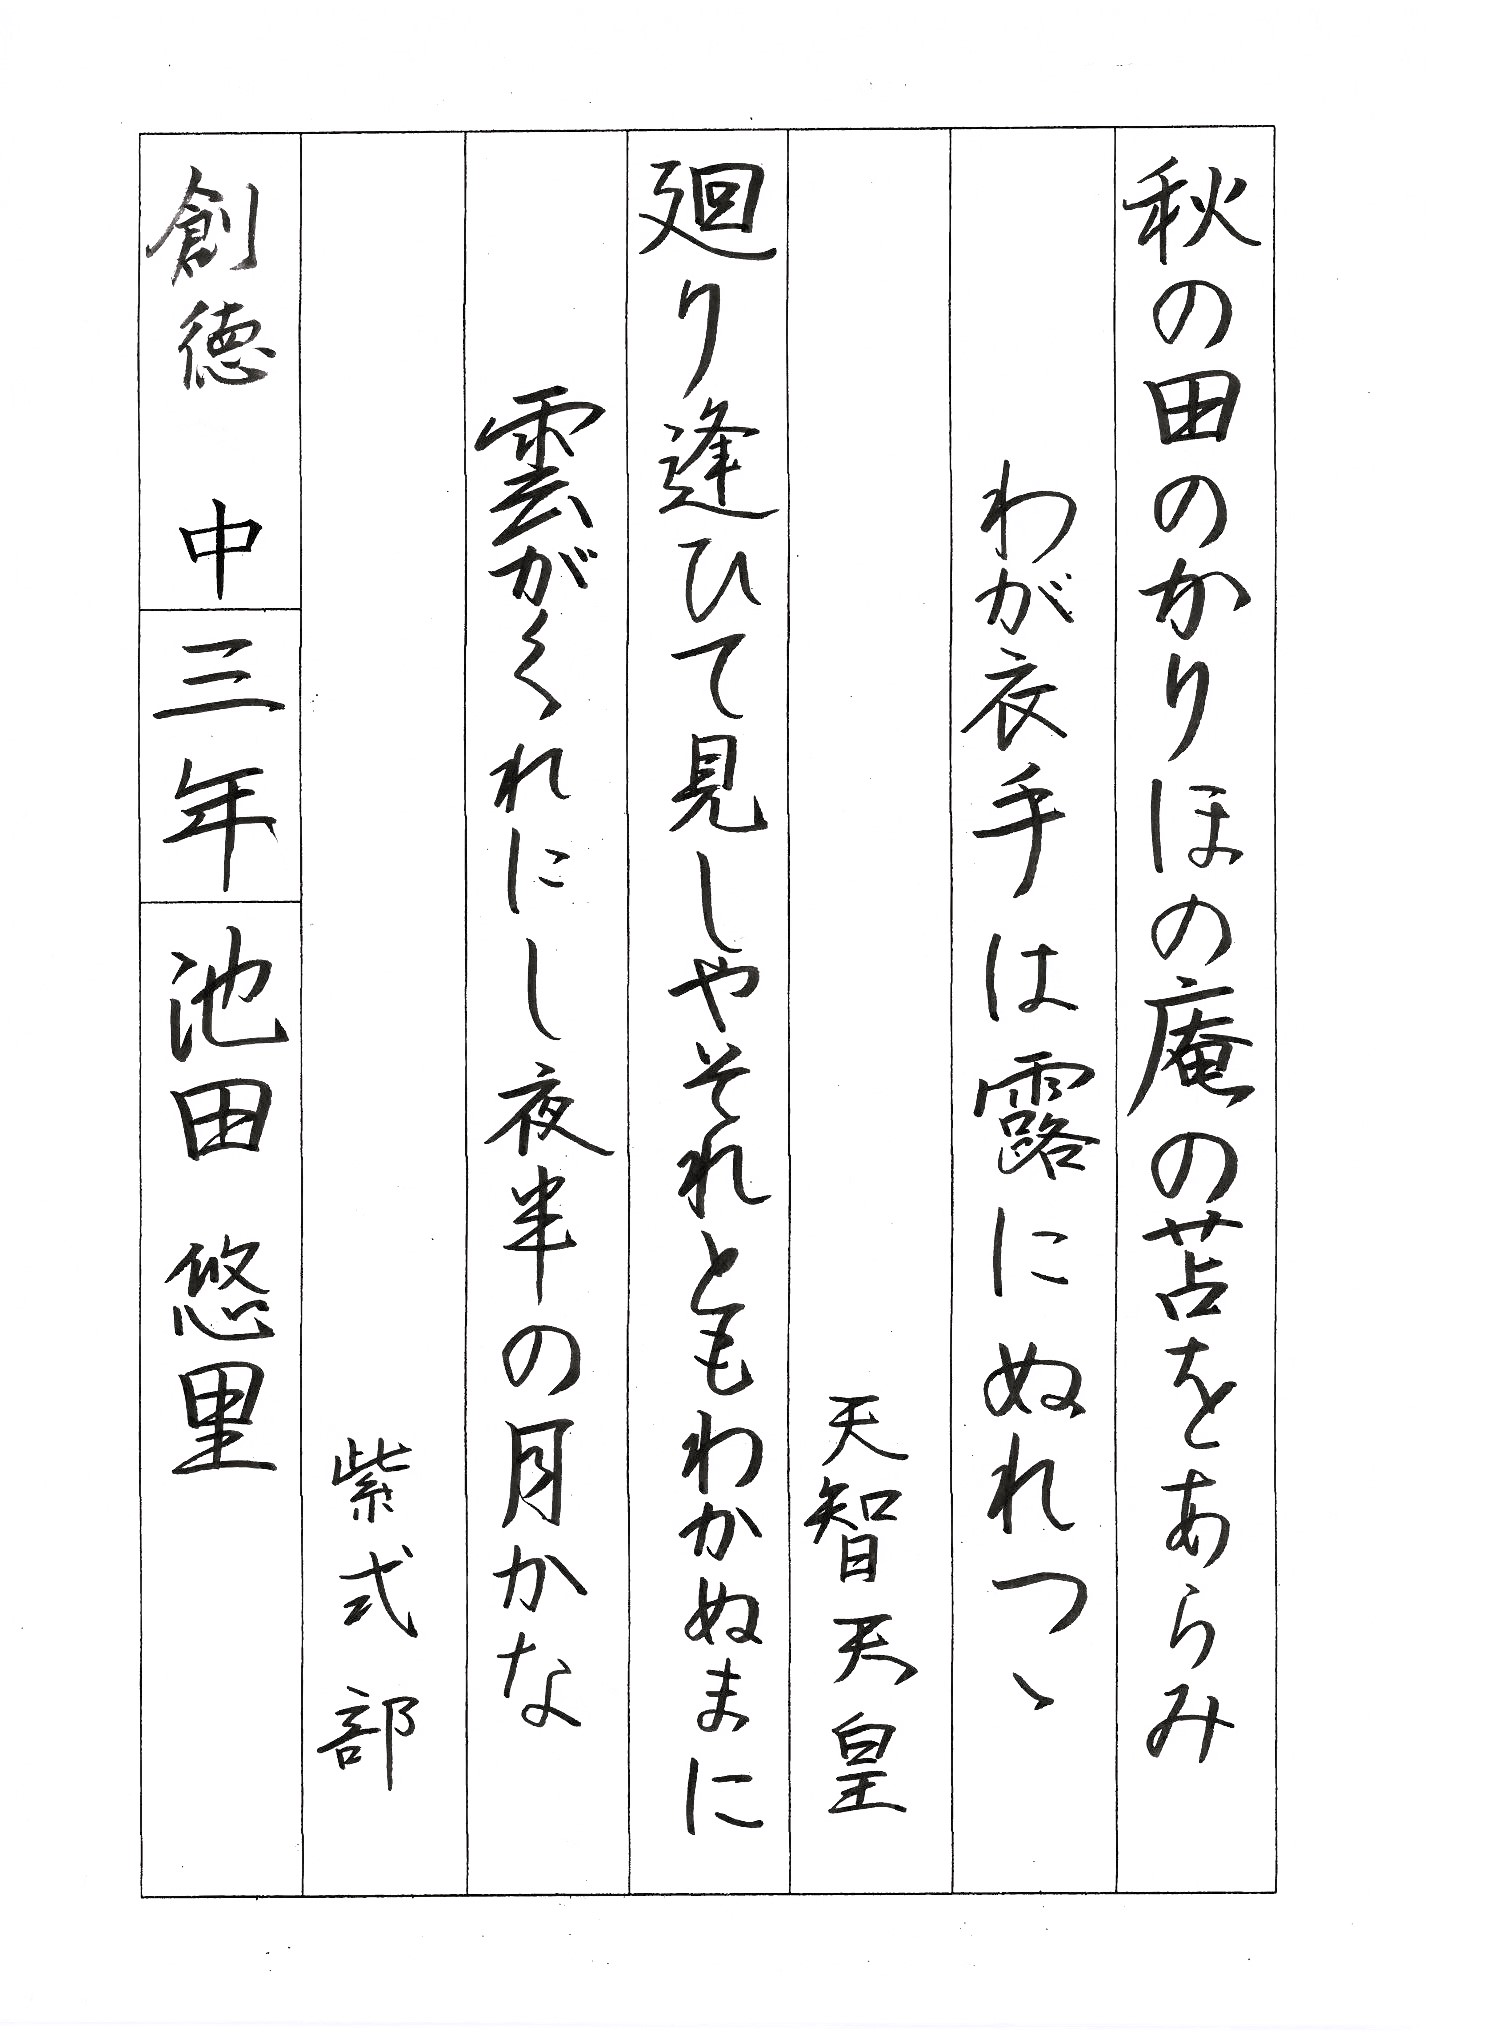 秋の田のかりほの庵の苫をあらみ
わが衣手は露にぬれつゝ
天智天皇
廻り逢ひて見しやそれともわかぬまに
雲がくれにし夜半の月かな
紫式部
創徳 中 三年 池田 悠里